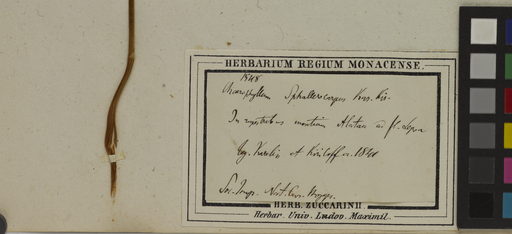 HERBARIUM REGIUM MONACENSE.
1848
Chaerophyllum Sphallerocarpus Kar. Kir.
In rupestribus montium Alatau ad fl. Lepsa
Leg. Karelin et Kiriloff a. 1841
Soc. Imp. Nat. Cur.
HERB. ZUCCARINII.
Herbar. Univ. Ludov. Maximil.